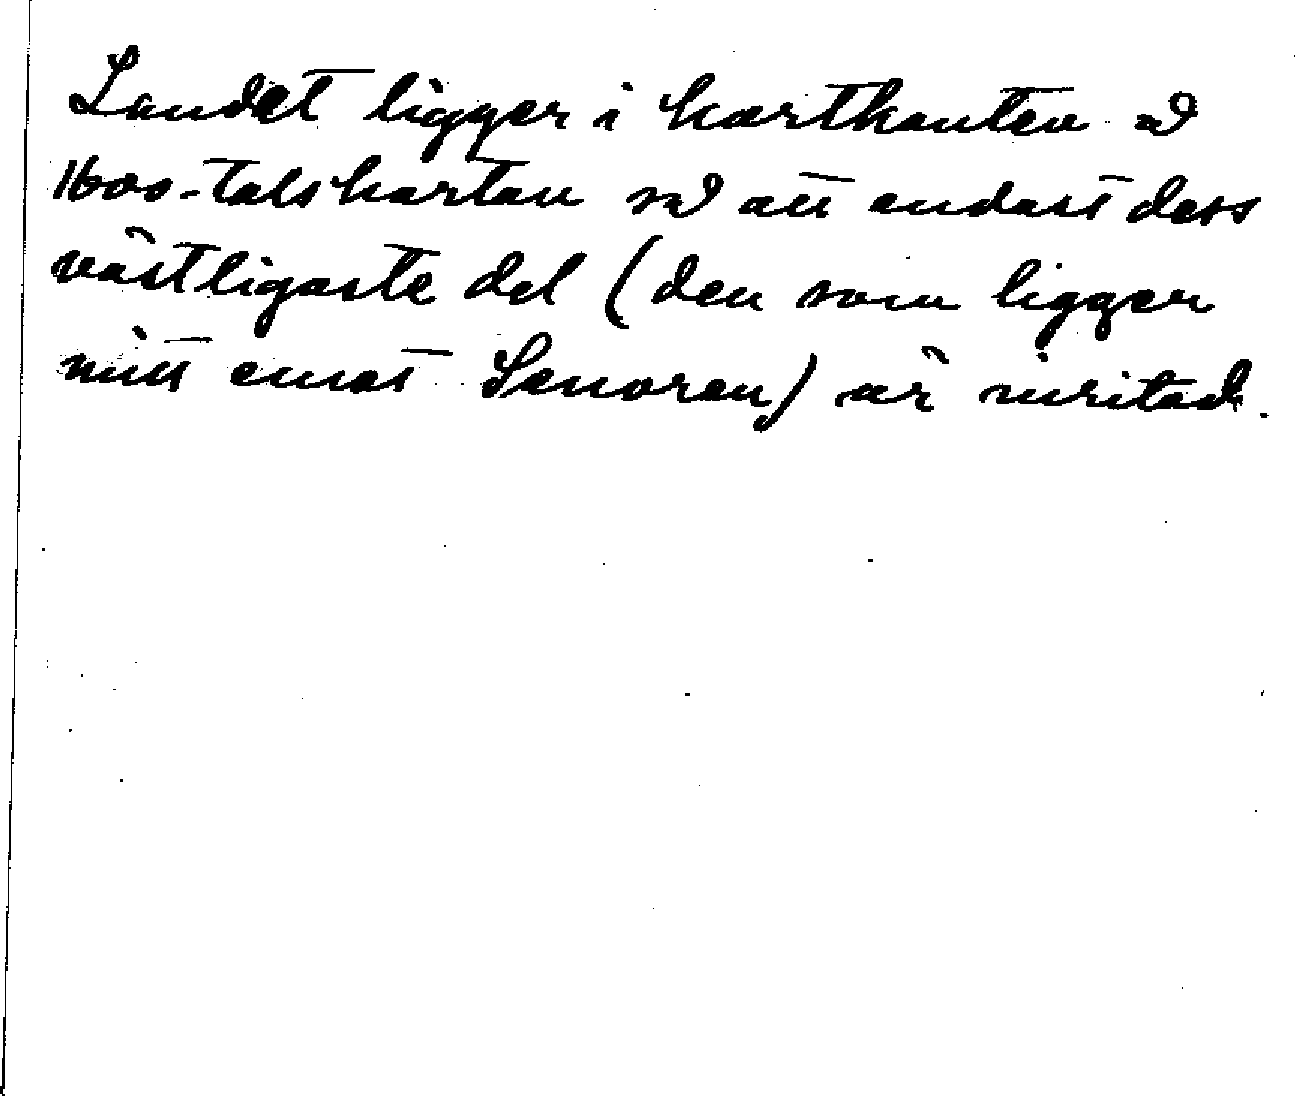 Landet ligger i kartkanten å
1600-talskartan så att endast dess
västligaste del (den som ligger
mitt emot Senoren) är inritad.